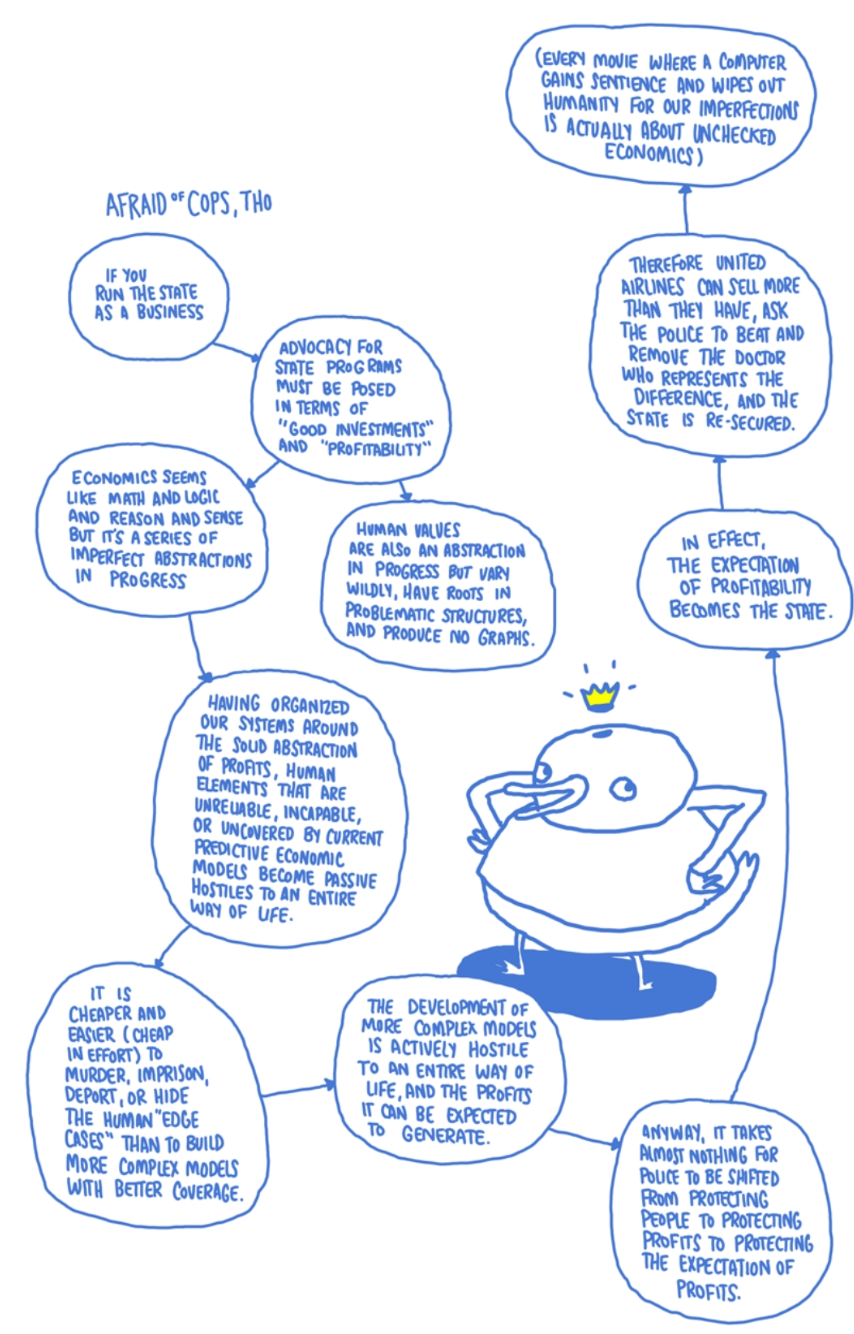 AFRAID OF COPS, THO
IF YOU
RUN THE STATE
AS A BUSINESS
ADVOCACY FOR
STATE PROGRAMS
MUST BE POSED
IN TERMS OF
"GOOD INVESTMENTS"
AND "PROFITABILITY"
HUMAN VALUES
ARE ALSO AN ABSTRACTION
IN PROGRESS BUT VARY
WILDLY, HAVE ROOTS IN
PROBLEMATIC STRUCTURES,
AND PRODUCE NO GRAPHS.
ECONOMICS SEEMS
LIKE MATH AND LOGIC
AND REASON AND SENSE
BUT IT'S A SERIES OF
IMPERFECT ABSTRACTIONS
IN PROGRESS
HAVING ORGANIZED
OUR SYSTEMS AROUND
THE SOLID ABSTRACTION
OF PROFITS, HUMAN
ELEMENTS THAT ARE
UNRELIABLE, INCAPABLE,
OR UNCOVERED BY CURRENT
PREDICTIVE ECONOMIC
MODELS BECOME PASSIVE
HOSTILES TO AN ENTIRE
WAY OF LIFE.
IT IS
CHEAPER AND
EASIER (CHEAP
IN EFFORT) TO
MURDER, IMPRISON,
DEPORT, OR HIDE
THE HUMAN "EDGE
CASES" THAN TO BUILD
MORE COMPLEX MODELS
WITH BETTER COVERAGE.
THE DEVELOPMENT OF
MORE COMPLEX MODELS
IS ACTIVELY HOSTILE
TO AN ENTIRE WAY OF
LIFE, AND THE PROFITS
IT CAN BE EXPECTED
TO GENERATE.
ANYWAY, IT TAKES
ALMOST NOTHING FOR
POLICE TO BE SHIFTED
FROM PROTECTING
PEOPLE TO PROTECTING
PROFITS TO PROTECTING
THE EXPECTATION OF
PROFITS.
IN EFFECT,
THE EXPECTATION
OF PROFITABILITY
BECOMES THE STATE.
THEREFORE UNITED
AIRLINES CAN SELL MORE
THAN THEY HAVE, ASK
THE POLICE TO BEAT AND
REMOVE THE DOCTOR
WHO REPRESENTS THE
DIFFERENCE, AND THE
STATE IS RE-SECURED.
(EVERY MOVIE WHERE A COMPUTER
GAINS SENTIENCE AND WIPES OUT
HUMANITY FOR OUR IMPERFECTIONS
IS ACTUALLY ABOUT UNCHECKED
ECONOMICS)